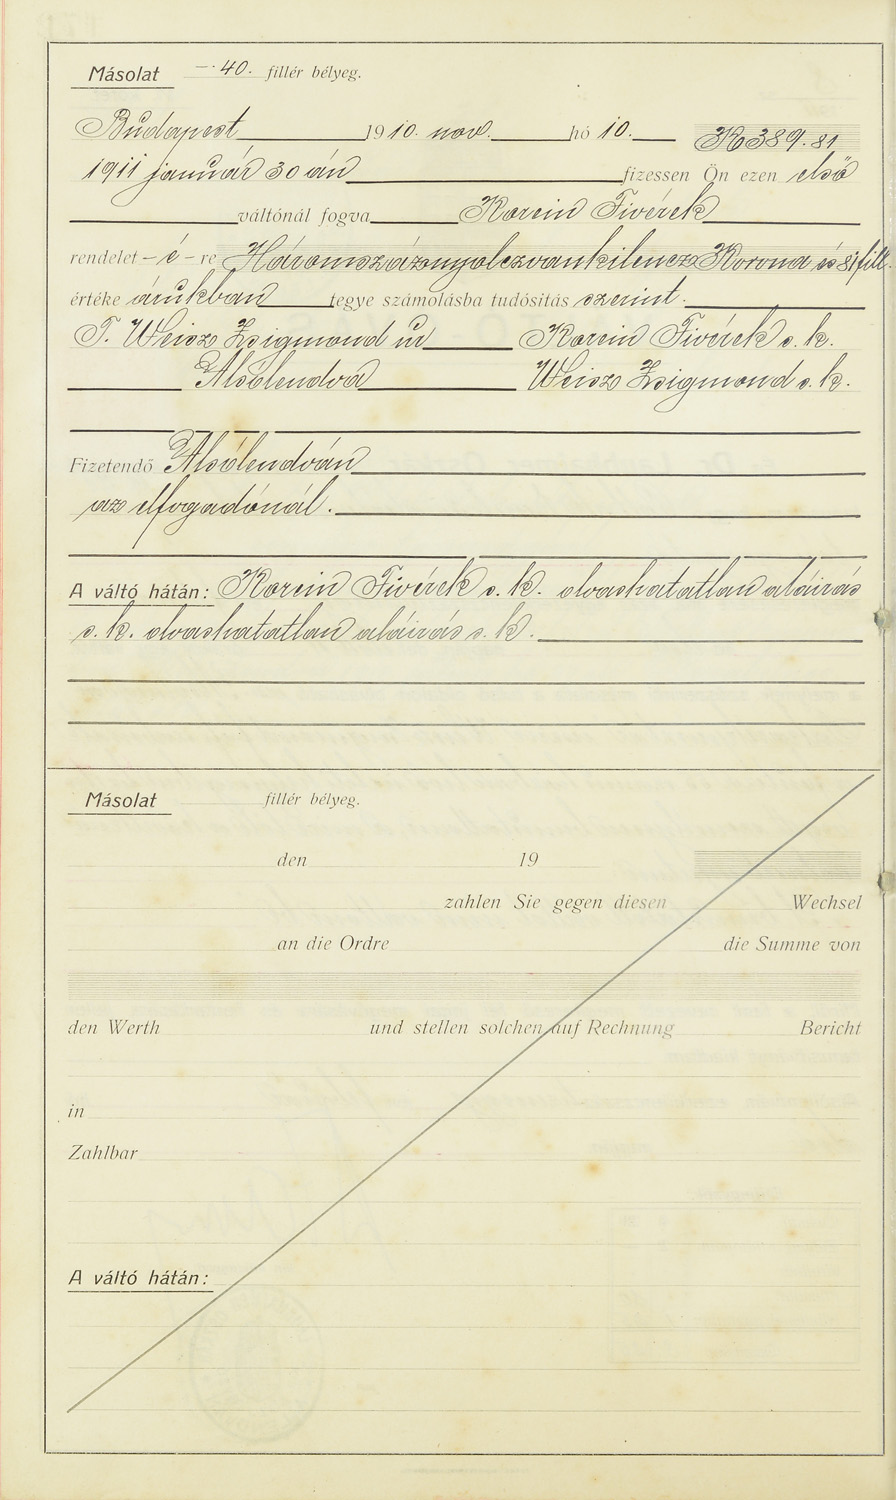 Másolat — 40. fillér bélyeg.
Budapest 1910. nov. hó 10. K 389.81
1911 január 30 án fizessen Ön ezen első
váltónál fogva Korein Fivérek
rendelet – é – re Háromszáznyolczvankilencz Korona és 81 fill.
értéke árukban tegye számolásba tudósitás szerint.
T. Weisz Zsigmond úr Korein Fivérek s. k.
Alsólendva Weisz Zsigmond s. k.
Fizetendő Alsólendván
az elfogadónál.
A váltó hátán: Korein Fivérek s. k. olvashatatlan aláirás
s. k. olvashatatlan aláirás s. k.
Másolat fillér bélyeg.
den 19
zahlen Sie gegen diesen Wechsel
an die Ordre die Summe von
den Werth und stellen solchen auf Rechnung Bericht
in
Zahlbar
A váltó hátán: